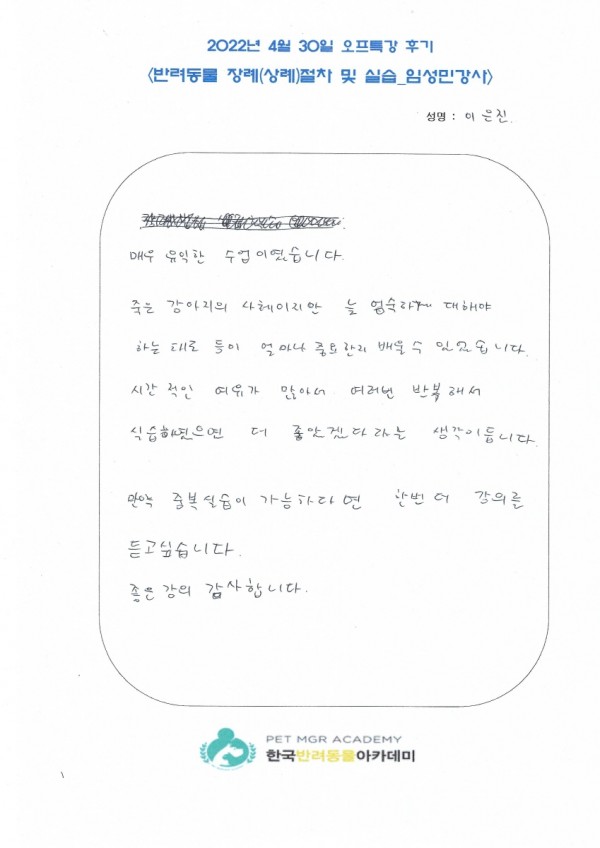 2022년 4월 30일 오프특강 후기
<반려동물 장례(상례)절차 및 실습_임성민강사>
성명 : 이은진.
매우 유익한 수업이였습니다.
죽은 강아지의 사체이지만 늘 엄숙하게 대해야
하는 태로 등이 얼마나 중요한지 배울 수 있었습니다.
시간적인 여유가 많아서 여러번 반복해서
실습하였으면 더 좋았겠다라는 생각이듭니다.
만약 중복실습이 가능하다면 한번 더 강의를
듣고싶습니다.
좋은강의 감사합니다.
PET MGR ACADEMY
한국반려동물아카데미